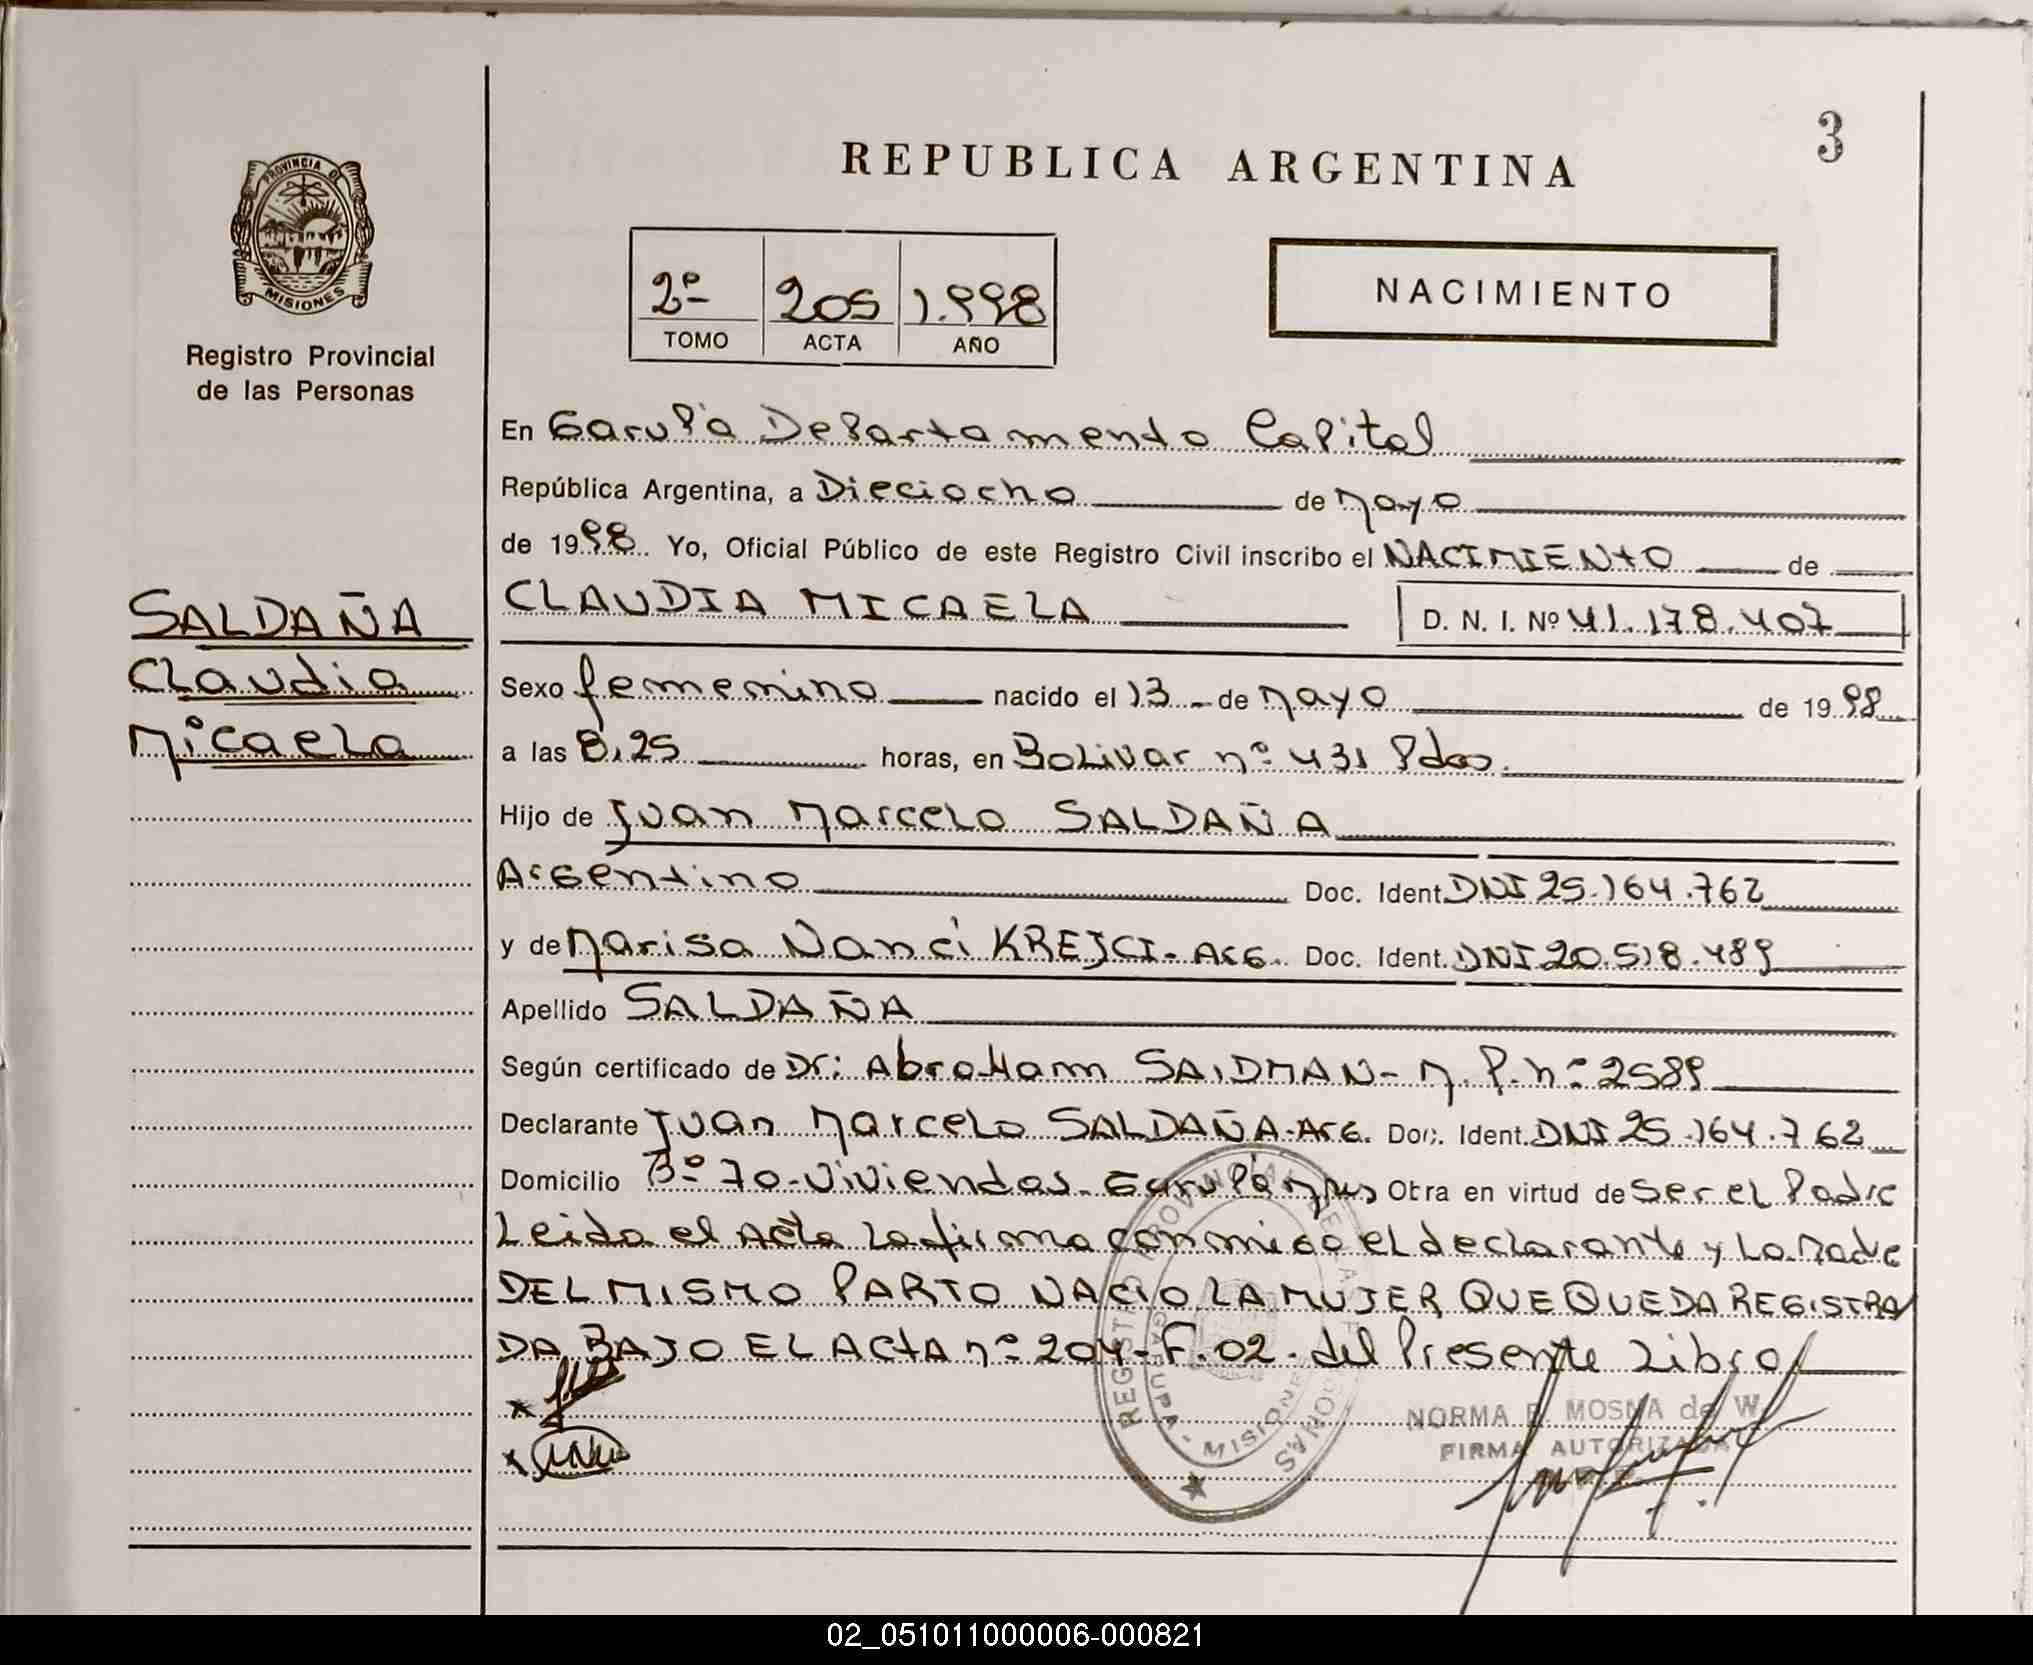 3
REPUBLICA ARGENTINA
PROVINCIA DE
MISIONES
2º 205 1.998
TOMO ACTA AÑO
NACIMIENTO
Registro Provincial
de las Personas
En Garupá Departamento Capital
República Argentina, a Dieciocho de Mayo
de 1998 Yo, Oficial Público de este Registro Civil inscribo el NACIMIENTO de
CLAUDIA MICAELA D. N. I. Nº 41.178.407
SALDAÑA
Claudia
Micaela
Sexo femenino nacido el 13 - de Mayo de 1998
a las 8,25 horas, en Bolivar nº 431 Pdas.
Hijo de Juan Marcelo SALDAÑA
Argentino Doc. Ident. DNI 25.164.762
y de Marisa Nanci KREJCI - Arg. Doc. Ident. DNI 20.518.489
Apellido SALDAÑA
Según certificado de Dr: AbraHam SAIDMAN - M.P. nº 2589
Declarante Juan Marcelo SALDAÑA - Arg. Doc. Ident. DNI 25.164.762
Domicilio Bº 70 - Viviendas - Garupá Mnes Obra en virtud de Ser el Padre
Leida el Acta la firma conmigo el declarante y La Madre
DEL MISMO PARTO NACIO LA MUJER QUE QUEDA REGISTRA
DA BAJO EL ACTA nº 204 - F. 02 - del Presente Libro
REGISTRO PROVINCIAL DE LAS PERSONAS
GARUPA - MISIONES
NORMA MOSNA de W.
FIRMA AUTORIZADA
02_051011000006-000821